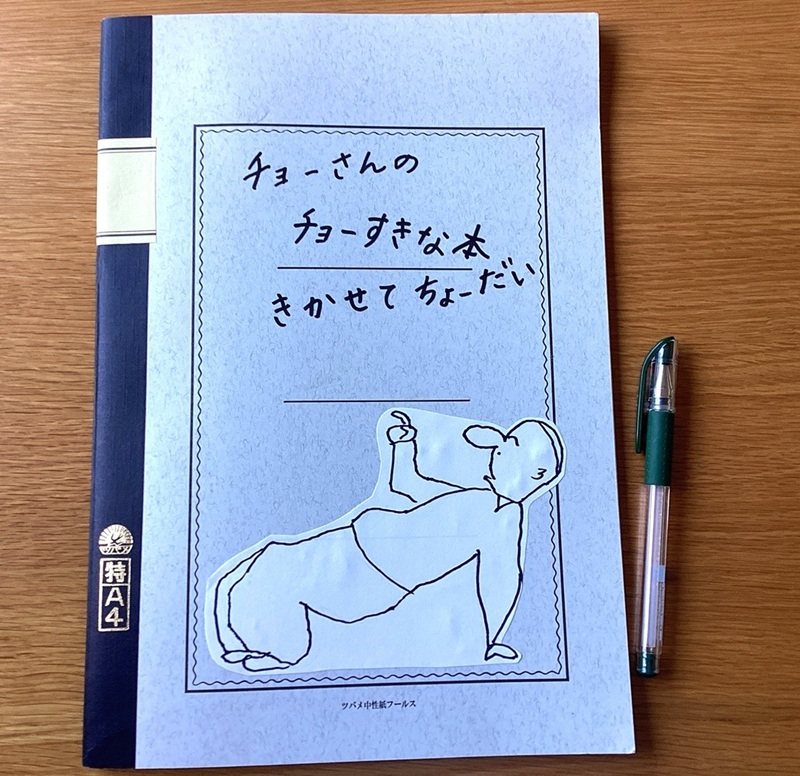 チョーさんの
チョーすきな本
きかせてちょーだい
ツバメ
特A4
ツバメ中性紙フールス